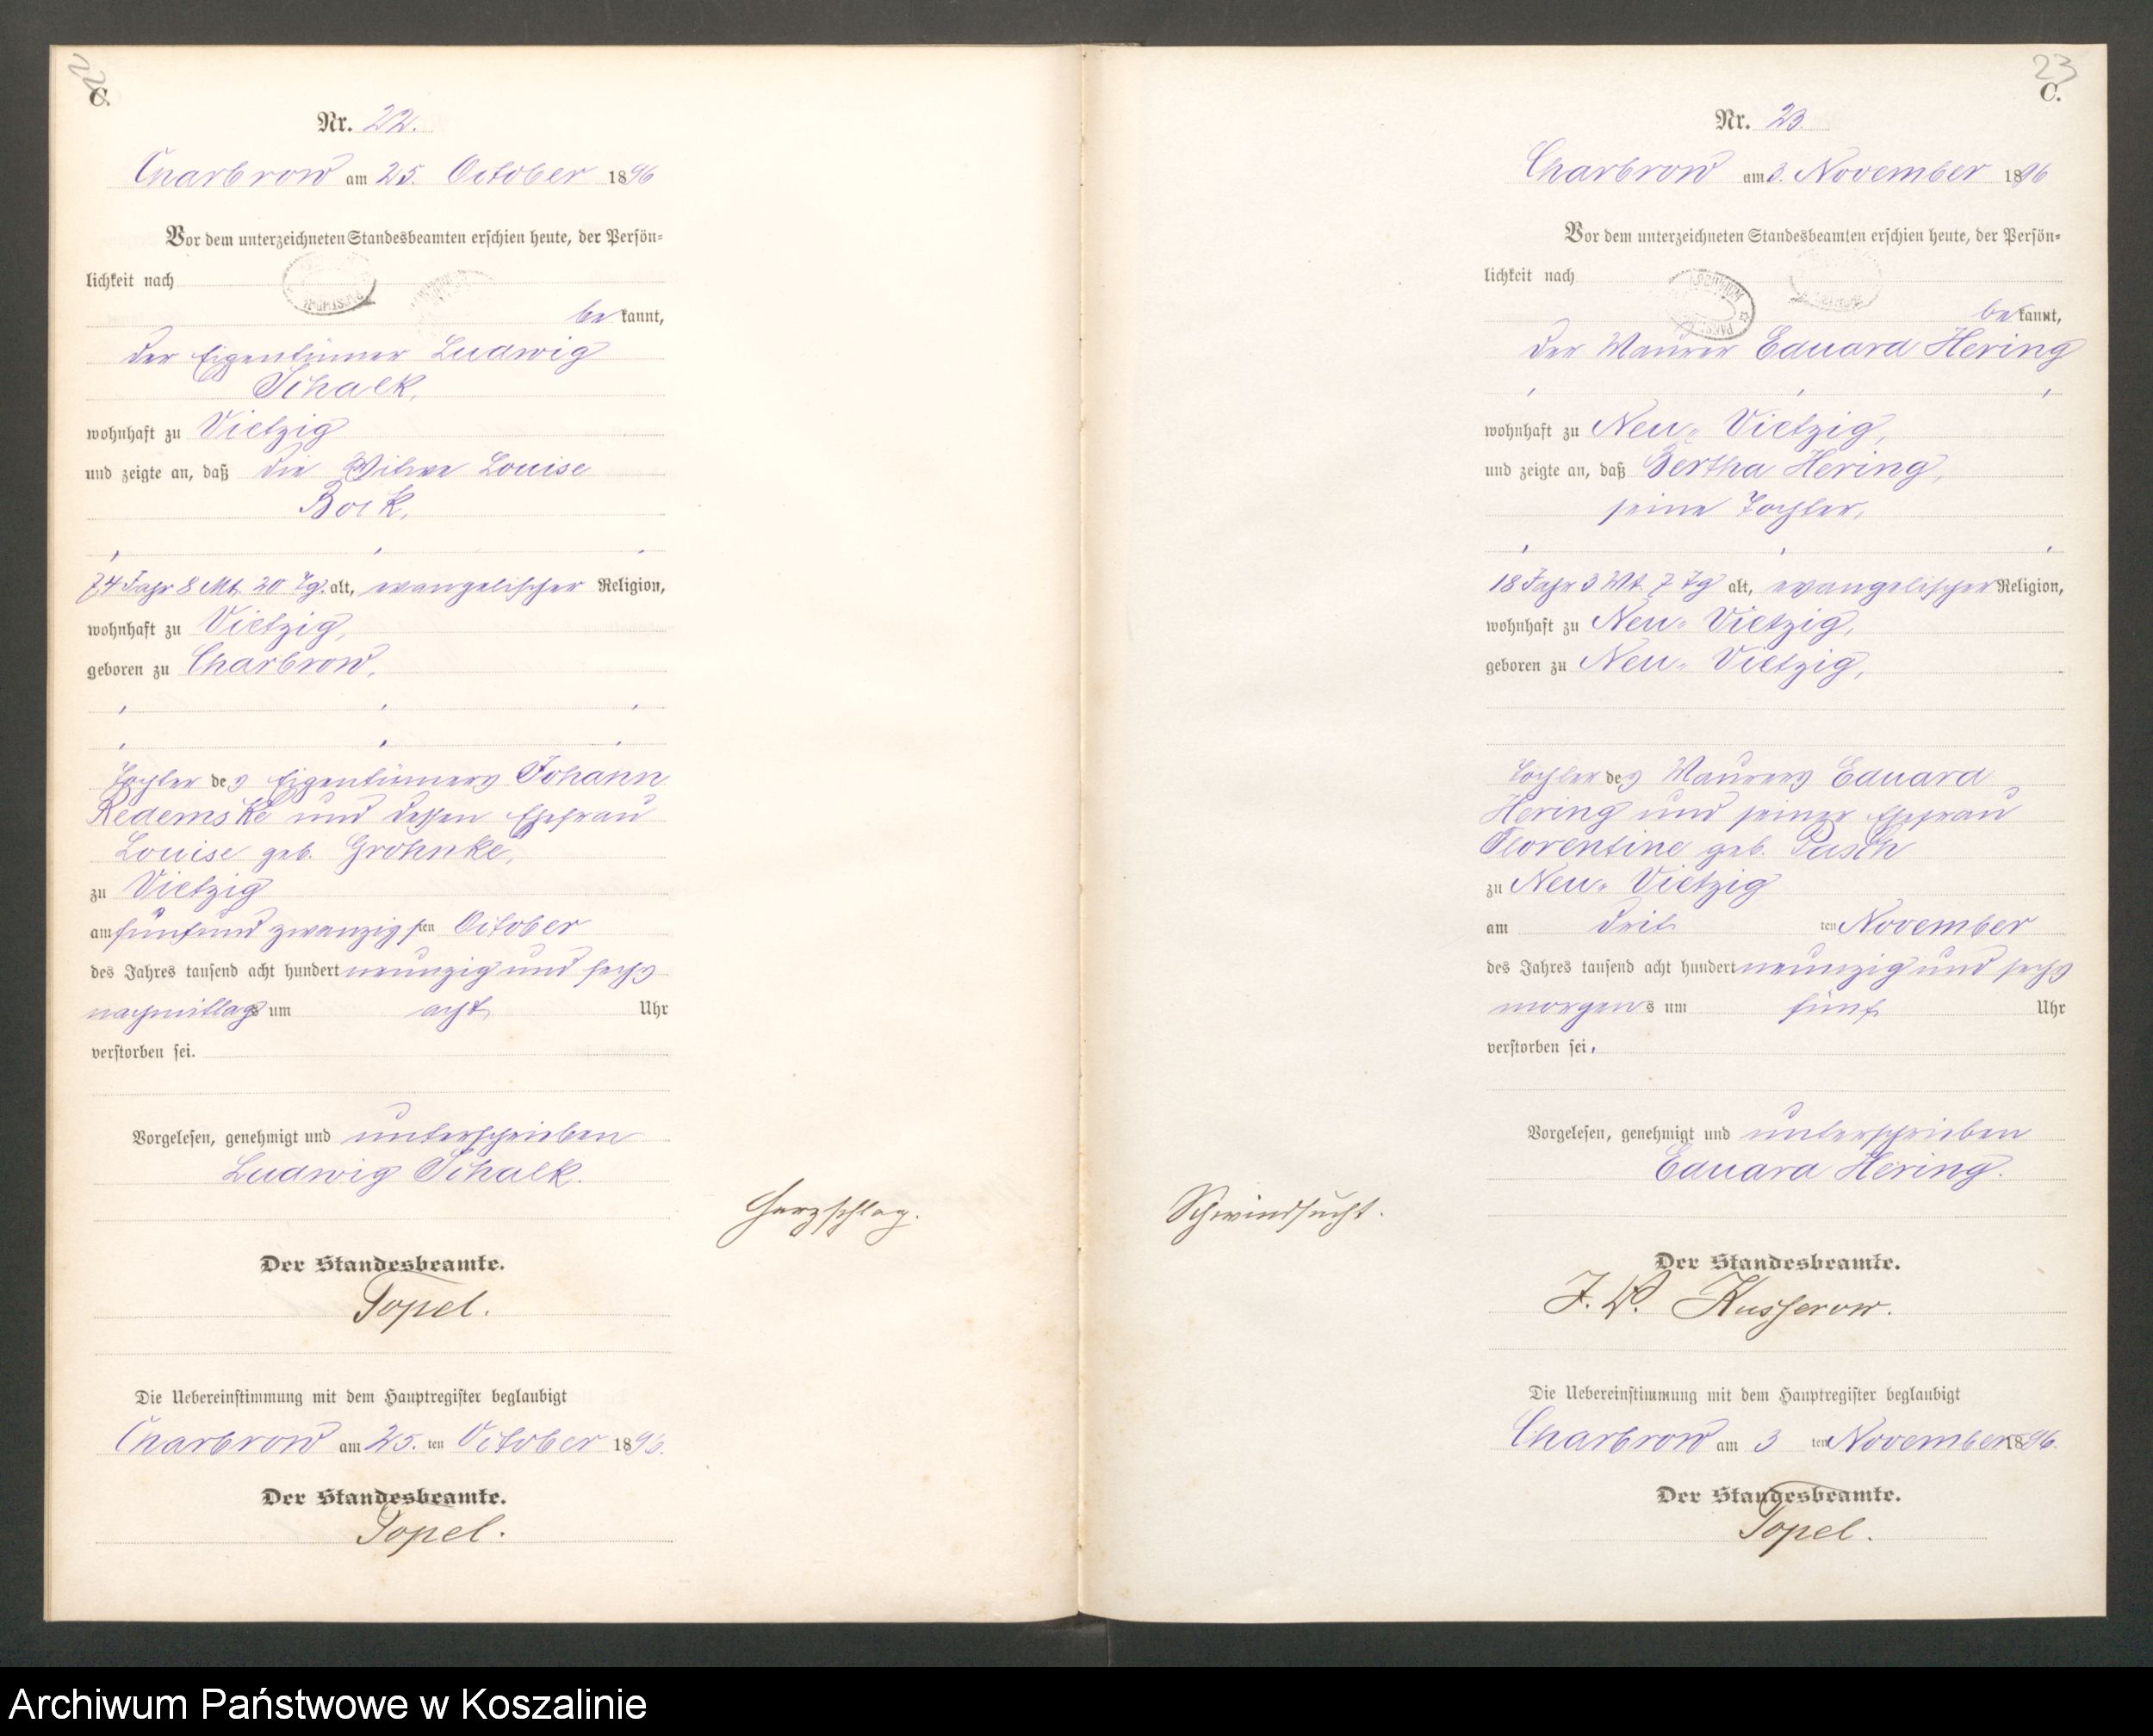 22
C.
Nr. 22.
Charbrow am 25. October 1896
Vor dem unterzeichneten Standesbeamten erschien heute, der Persön-
lichkeit nach
be kannt,
der Eigentümer Ludwig
Schalk,
wohnhaft zu Vietzig
und zeigte an, daß die Witwe Louise
Bock,
74 Jahr 8 Mt. 20 Tg. alt, evangelischer Religion,
wohnhaft zu Vietzig,
geboren zu Charbrow,
Tochter des Eigentümers Johann
Redemske und dessen Ehefrau
Louise geb. Grohnke,
zu Vietzig
am fünfundzwanzigsten October
des Jahres tausend acht hundert neunzig und sechs
nachmittags um acht Uhr
verstorben sei.
Vorgelesen, genehmigt und unterschrieben
Ludwig Schalk.
Herzschlag.
Der Standesbeamte.
Topel.
Die Uebereinstimmung mit dem Hauptregister beglaubigt
Charbrow am 25. ten October 1896.
Der Standesbeamte.
Topel.
23
C.
Nr. 23.
Charbrow am 3. November 1896
Vor dem unterzeichneten Standesbeamten erschien heute, der Persön-
lichkeit nach
be kannt,
der Maurer Eduard Hering
wohnhaft zu Neu-Vietzig,
und zeigte an, daß Bertha Hering,
seine Tochter,
18 Jahr 3 Mt. 7 Tg alt, evangelischer Religion,
wohnhaft zu Neu-Vietzig,
geboren zu Neu-Vietzig,
Tochter des Maurers Eduard
Hering und seiner Ehefrau
Florentine geb. Pasch
zu Neu-Vietzig
am dritten November
des Jahres tausend acht hundert neunzig und sechs
morgens um fünf Uhr
verstorben sei.
Vorgelesen, genehmigt und unterschrieben
Eduard Hering.
Schwindsucht.
Der Standesbeamte.
J. V. Kusserow.
Die Uebereinstimmung mit dem Hauptregister beglaubigt
Charbrow am 3 ten November 1896.
Der Standesbeamte.
Topel.
Archiwum Państwowe w Koszalinie